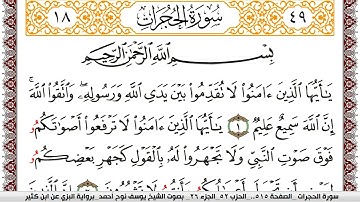 ٤٩ سُورَةُ الحُجُرَاتِ ١٨
بِسْمِ اللَّهِ الرَّحْمَٰنِ الرَّحِيمِ
يَـٰٓأَيُّهَا الَّذِينَ ءَامَنُواْ لَا تُقَدِّمُواْ بَيْنَ يَدَىِ اللَّهِ وَرَسُولِهِۦ وَاتَّقُواْ اللَّهَ
إِنَّ اللَّهَ سَمِيعٌ عَلِيمٌ ١ يَـٰٓأَيُّهَا الَّذِينَ ءَامَنُواْ لَا تَرْفَعُواْ أَصْوَاتَكُمُۥ
فَوْقَ صَوْتِ النَّبِيِّ وَلَا تَجْهَرُواْ لَهُۥ بِالْقَوْلِ كَجَهْرِ بَعْضِكُمُۥ
سورة الحجرات _الصفحة ٥١٥_ الحزب ٥٢_الجزء ٢٦_ بصوت الشيخ يوسف نوح أحمد_برواية البزي عن ابن كثير